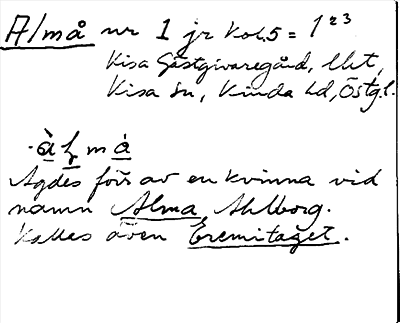 Almå nr 1 jr kol. 5 = 1²³
Kisa Gästgivaregård, lht,
Kisa sn, Kinda hd, Östgl.
àlmá
Ägdes förr av en kvinna vid
namn Alma Ahlborg.
Kallas även Eremitaget.